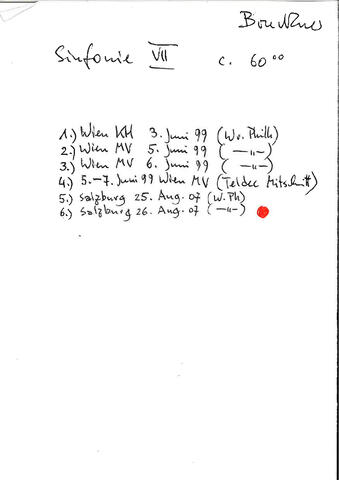 Bruckner
Sinfonie VII c. 60°°
1.) Wien KH 3. Juni 99 (Wr. Philh)
2.) Wien MV 5. Juni 99 (—"—)
3.) Wien MV 6. Juni 99 (—"—)
4.) 5.–7. Juni 99 Wien MV (Teldec Mitschnitt)
5.) Salzburg 25. Aug. 07 (W. Ph)
6.) Salzburg 26. Aug. 07 (—"—)